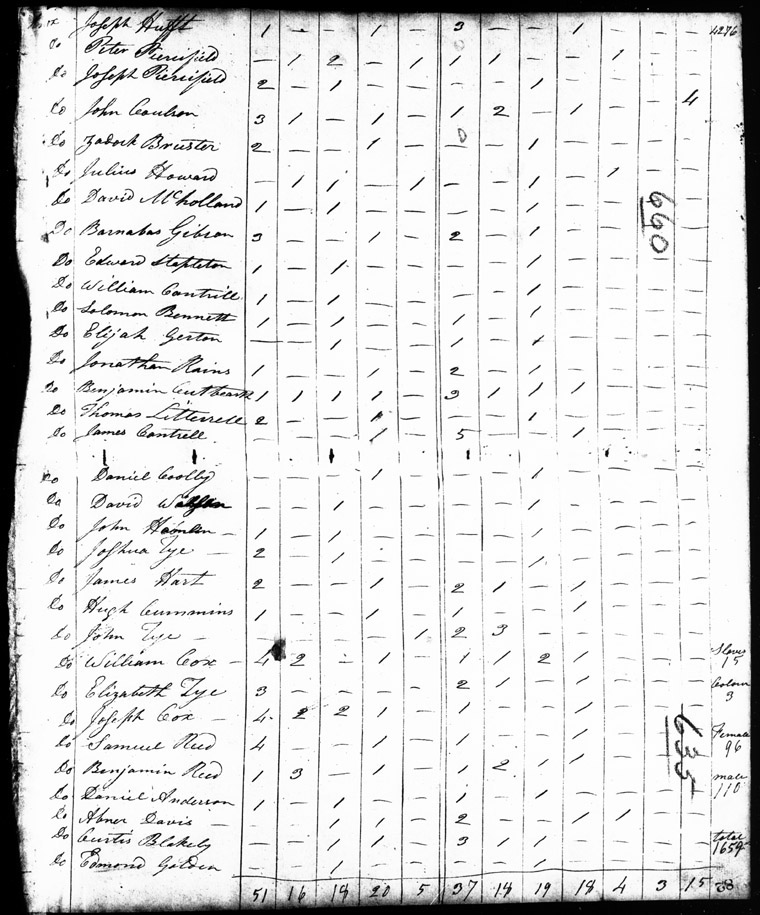 Do Joseph Hufft 1 — — 1 — 3 — — 1 — — — 4276
Do Peter Piercifield — 1 2 — 1 1 1 — — 1 — —
Do Joseph Piercifield 2 — 1 — — — — 1 — — — —
Do John Coulson 3 1 — 1 — 1 2 — 1 — — 4
Do Zadock Bruster 2 — — 1 — 0 — 1 — — — —
Do Julius Howard — 1 1 — 1 — — 1 — 1 — —
Do David McHolland 1 — 1 — — 1 — 1 — — — —
660
Do Barnabas Gibson 3 — — 1 — 2 — 1 — — — —
Do Edward Stepleton 1 — 1 — — — — 1 — — — —
Do William Cantrill 1 — 1 — — — — 1 — — — —
Do Solomon Bennett 1 — 1 — — 1 — 1 — — — —
Do Elijah Gerton — — 1 — — 1 — 1 — — — —
Do Jonathan Rains 1 — — 1 — 2 — 1 — — — —
Do Benjamin Cutbearth 1 1 1 1 — 3 1 1 1 — — —
Do Thomas Litterrell 2 — — 1 — — — 1 — — — —
Do James Cantrell — — — 1 — 5 — — 1 — — —
Do Daniel Coolby — — — 1 — — — 1 — — — —
Do David — — 1 — — — — 1 — — — —
Do John Hamlin — 1 — 1 — — — — 1 — — — —
Do Joshua Tye — 2 — 1 — — — — 1 — — — —
Do James Hart 2 — — 1 — 2 1 — 1 — — —
Do Hugh Cummins 1 — — 1 — 1 — — 1 — — —
Do John Tye — — — — — 1 2 3 — — — — —
Do William Cox — 4 2 — 1 — 1 1 2 1 — — — Slaves 15
Do Elizabeth Tye 3 — — — — 2 1 — 1 — — — Colour 3
Do Joseph Cox — 4 2 2 1 — 1 — — 1 — — —
635
Do Samuel Reed 4 — — 1 — 1 — — 1 — — — Female 96
Do Benjamin Reed 1 3 — 1 — 1 2 1 1 — — — male 110
Do Daniel Anderson 1 — 1 — — 1 — 1 — — — —
Do Abner Davis — — 1 1 — 2 — — 1 1 — —
Do Curtis Blakely — — 1 1 — 3 1 1 — — — — total 1659
Do Edmond Golden — — 1 — — — — 1 — — — —
51 16 18 20 5 37 18 19 18 4 3 15 38